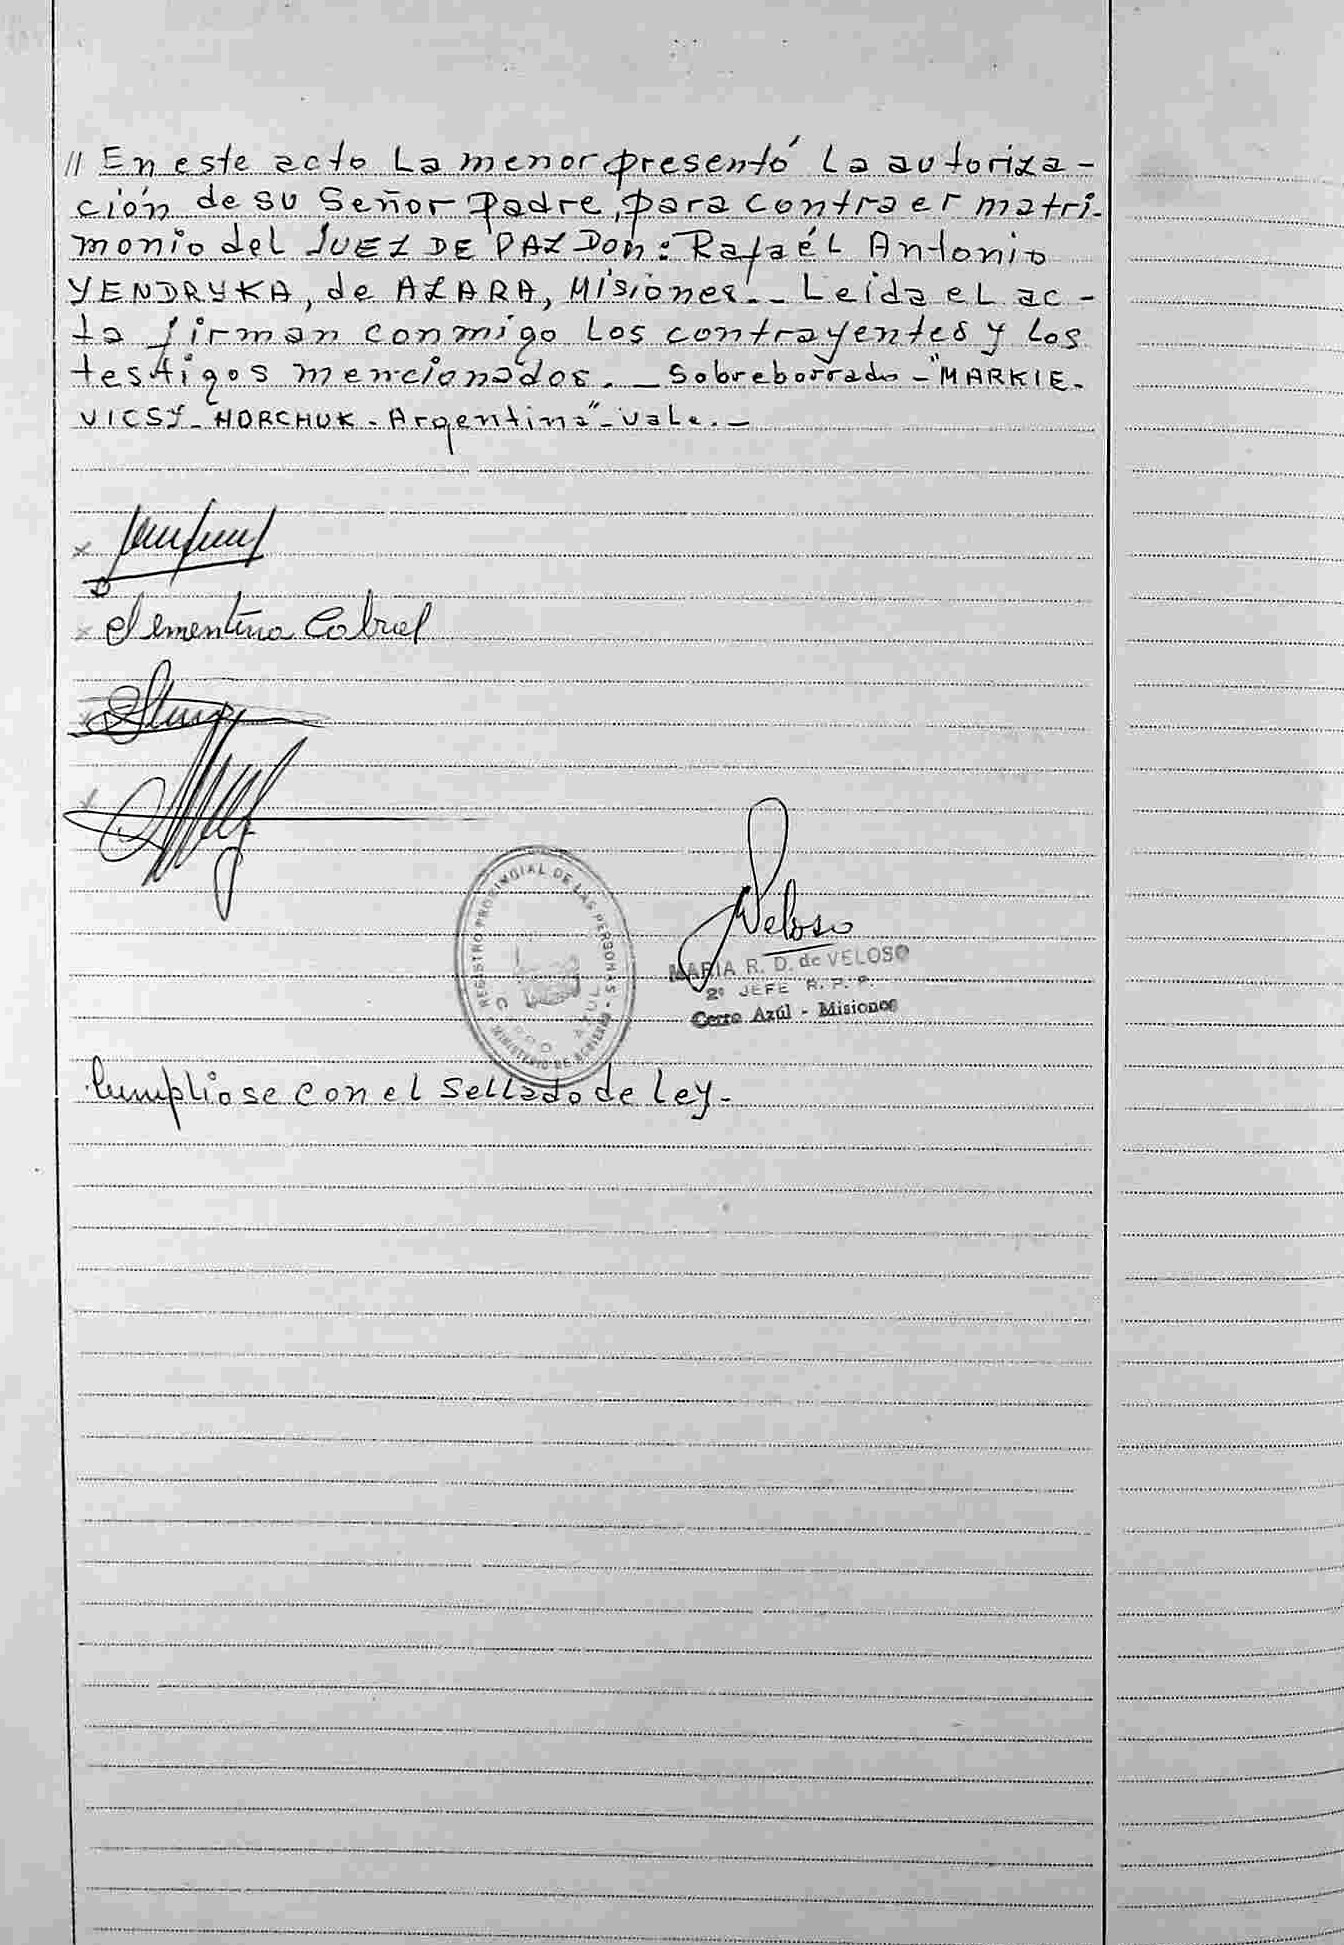 // En este acto La menor presentó La autoriza-
ción de su Señor Padre, para contraer matri-
monio del JUEZ DE PAZ Don: Rafaél Antonio
YENDRYKA, de AZARA, Misiones.- Leida el ac-
ta firman conmigo Los contrayentes y Los
testigos mencionados. - Sobreborrado - "MARKIE-
VICSZ - HORCHUK - Argentina" - vale. -
Clementina Cabral
Veloso
REGISTRO PROVINCIAL DE LAS PERSONAS - MINISTERIO DE GOBIERNO
CERRO AZUL
MARIA R. D. de VELOSO
2º JEFE R. P. P.
Cerro Azúl - Misiones
Cumpliose con el Sellado de Ley.-